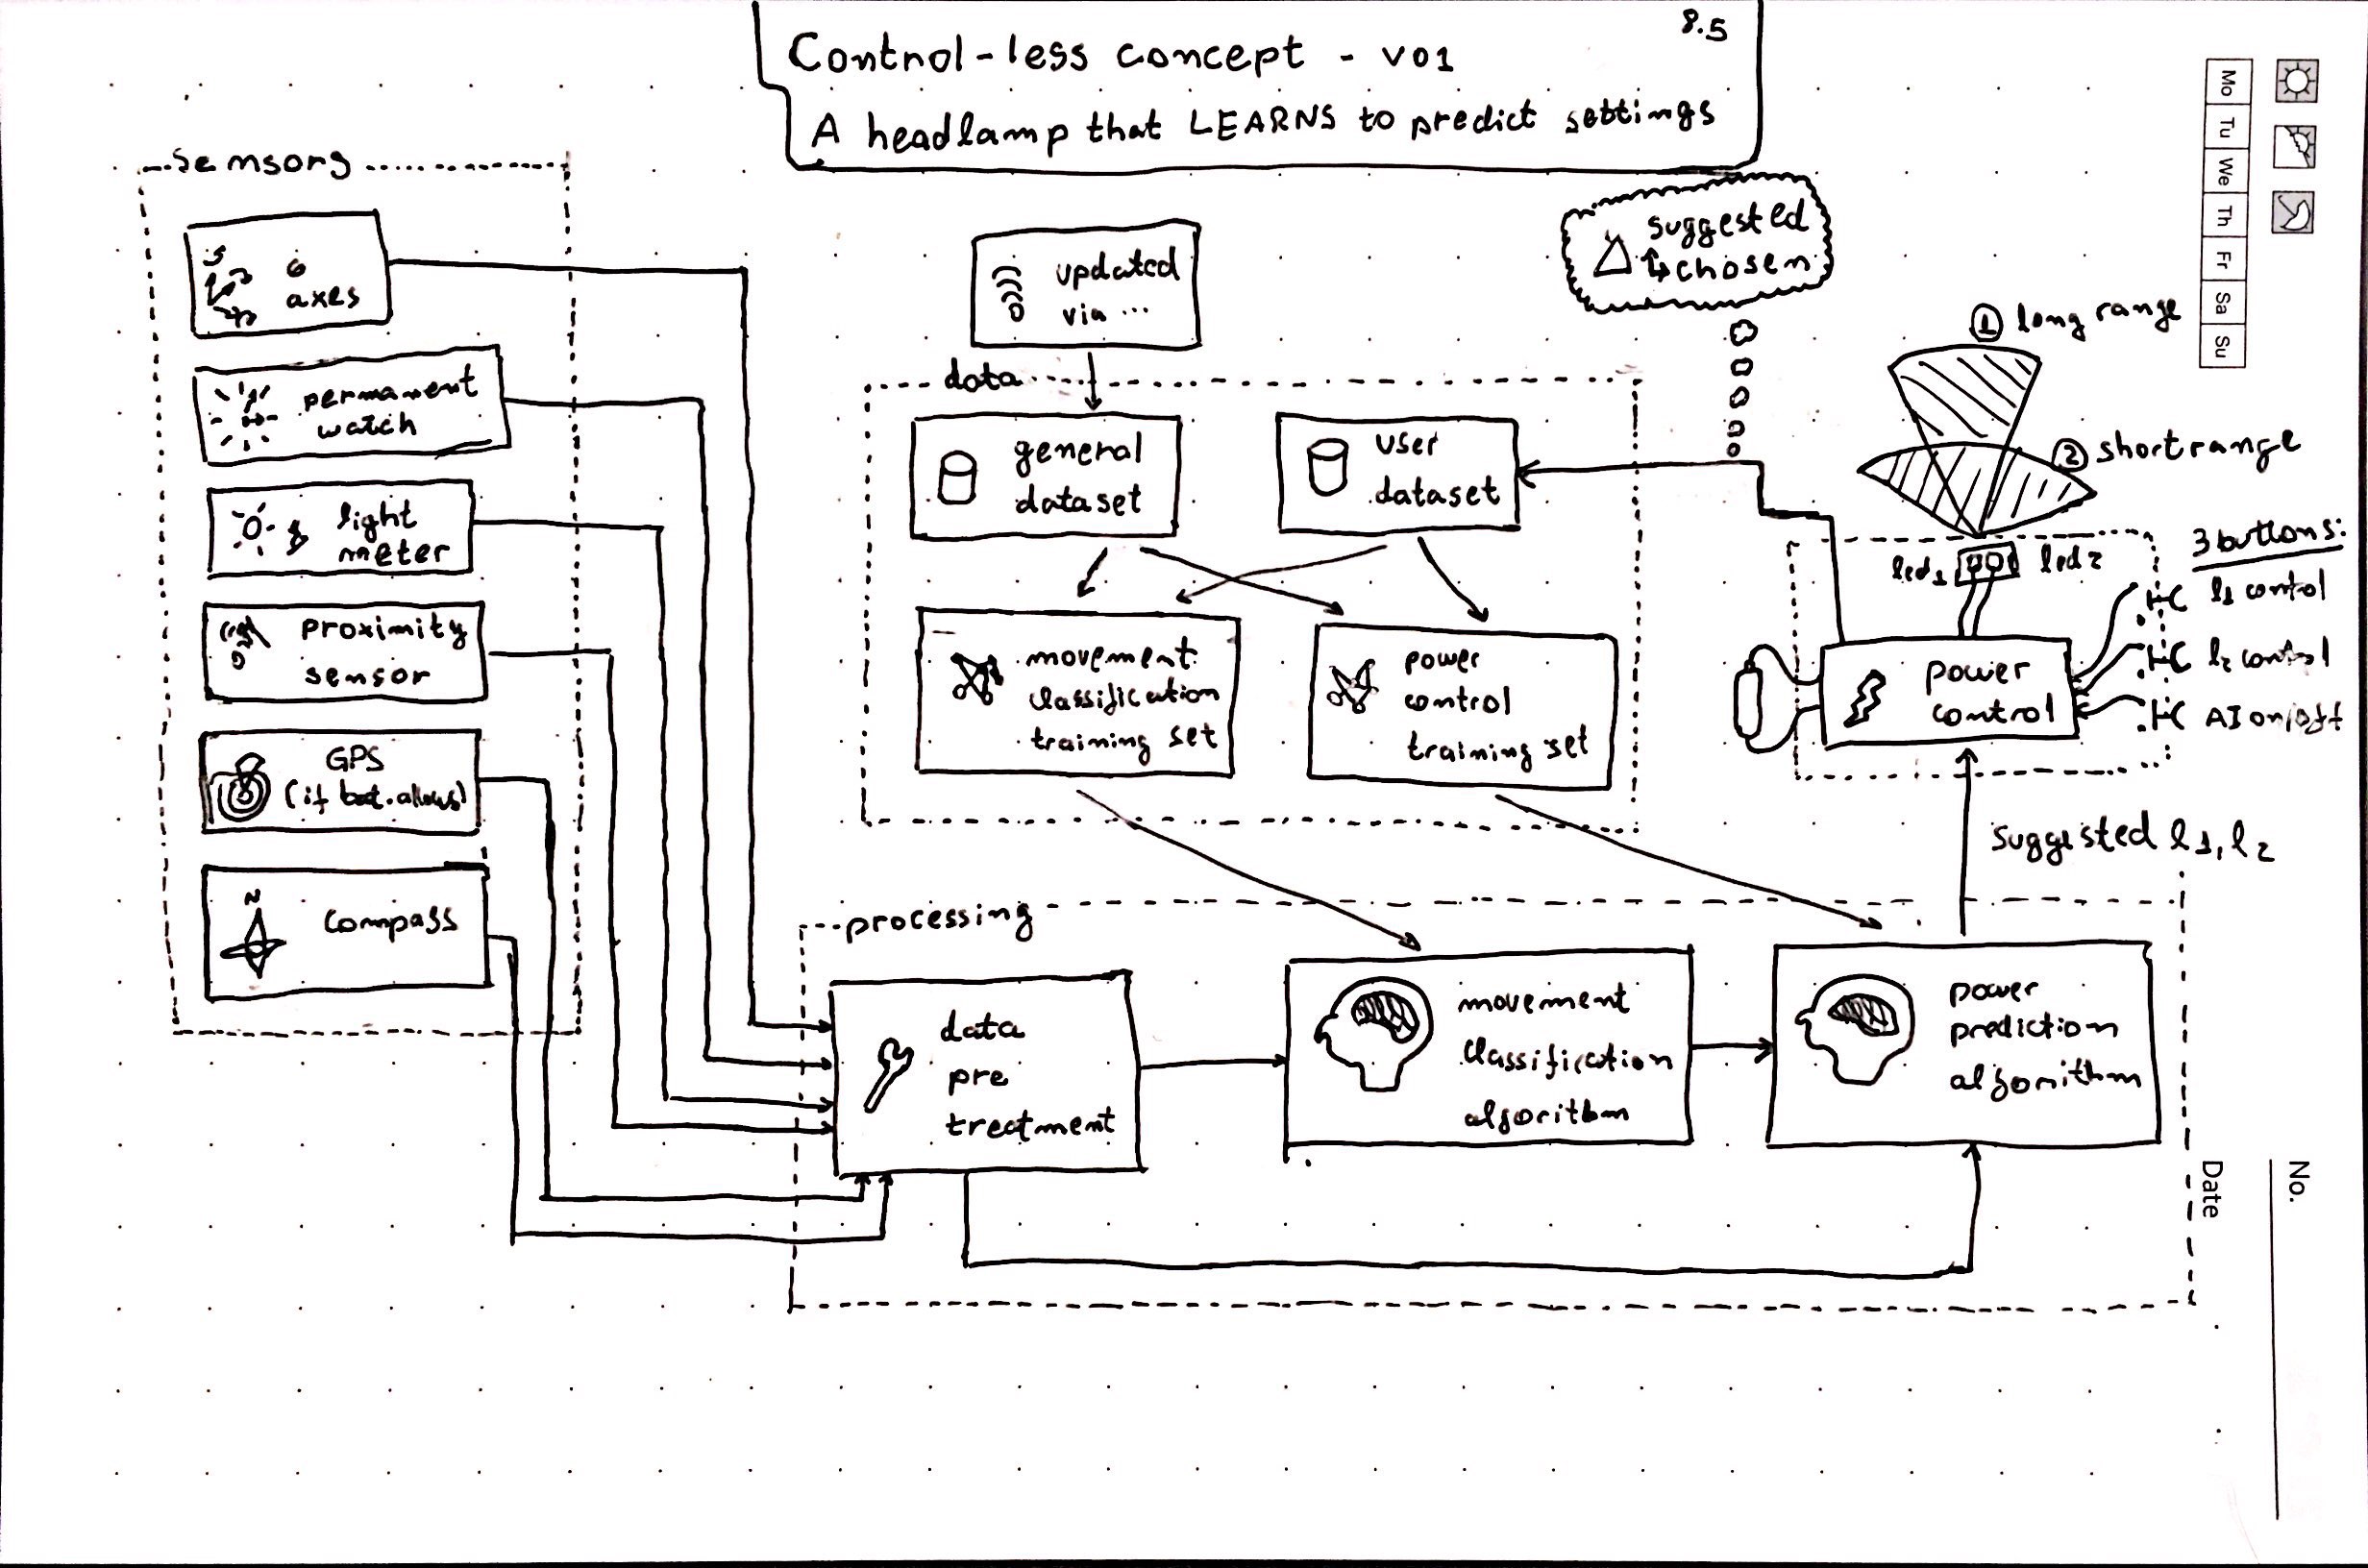 8.5
Control-less concept - v01
A headlamp that LEARNS to predict settings
sensors
6
axes
permanent
watch
light
meter
proximity
sensor
GPS
(if bat. allows)
N
compass
updated
via ...
data
general
dataset
user
dataset
movement
classification
training set
power
control
training set
suggested
chosen
1 long range
2 short range
led1
led2
3 buttons:
l1 control
l2 control
AI on/off
power
control
suggested l1, l2
processing
data
pre
treatment
movement
classification
algorithm
power
prediction
algorithm
Mo
Tu
We
Th
Fr
Sa
Su
No.
Date